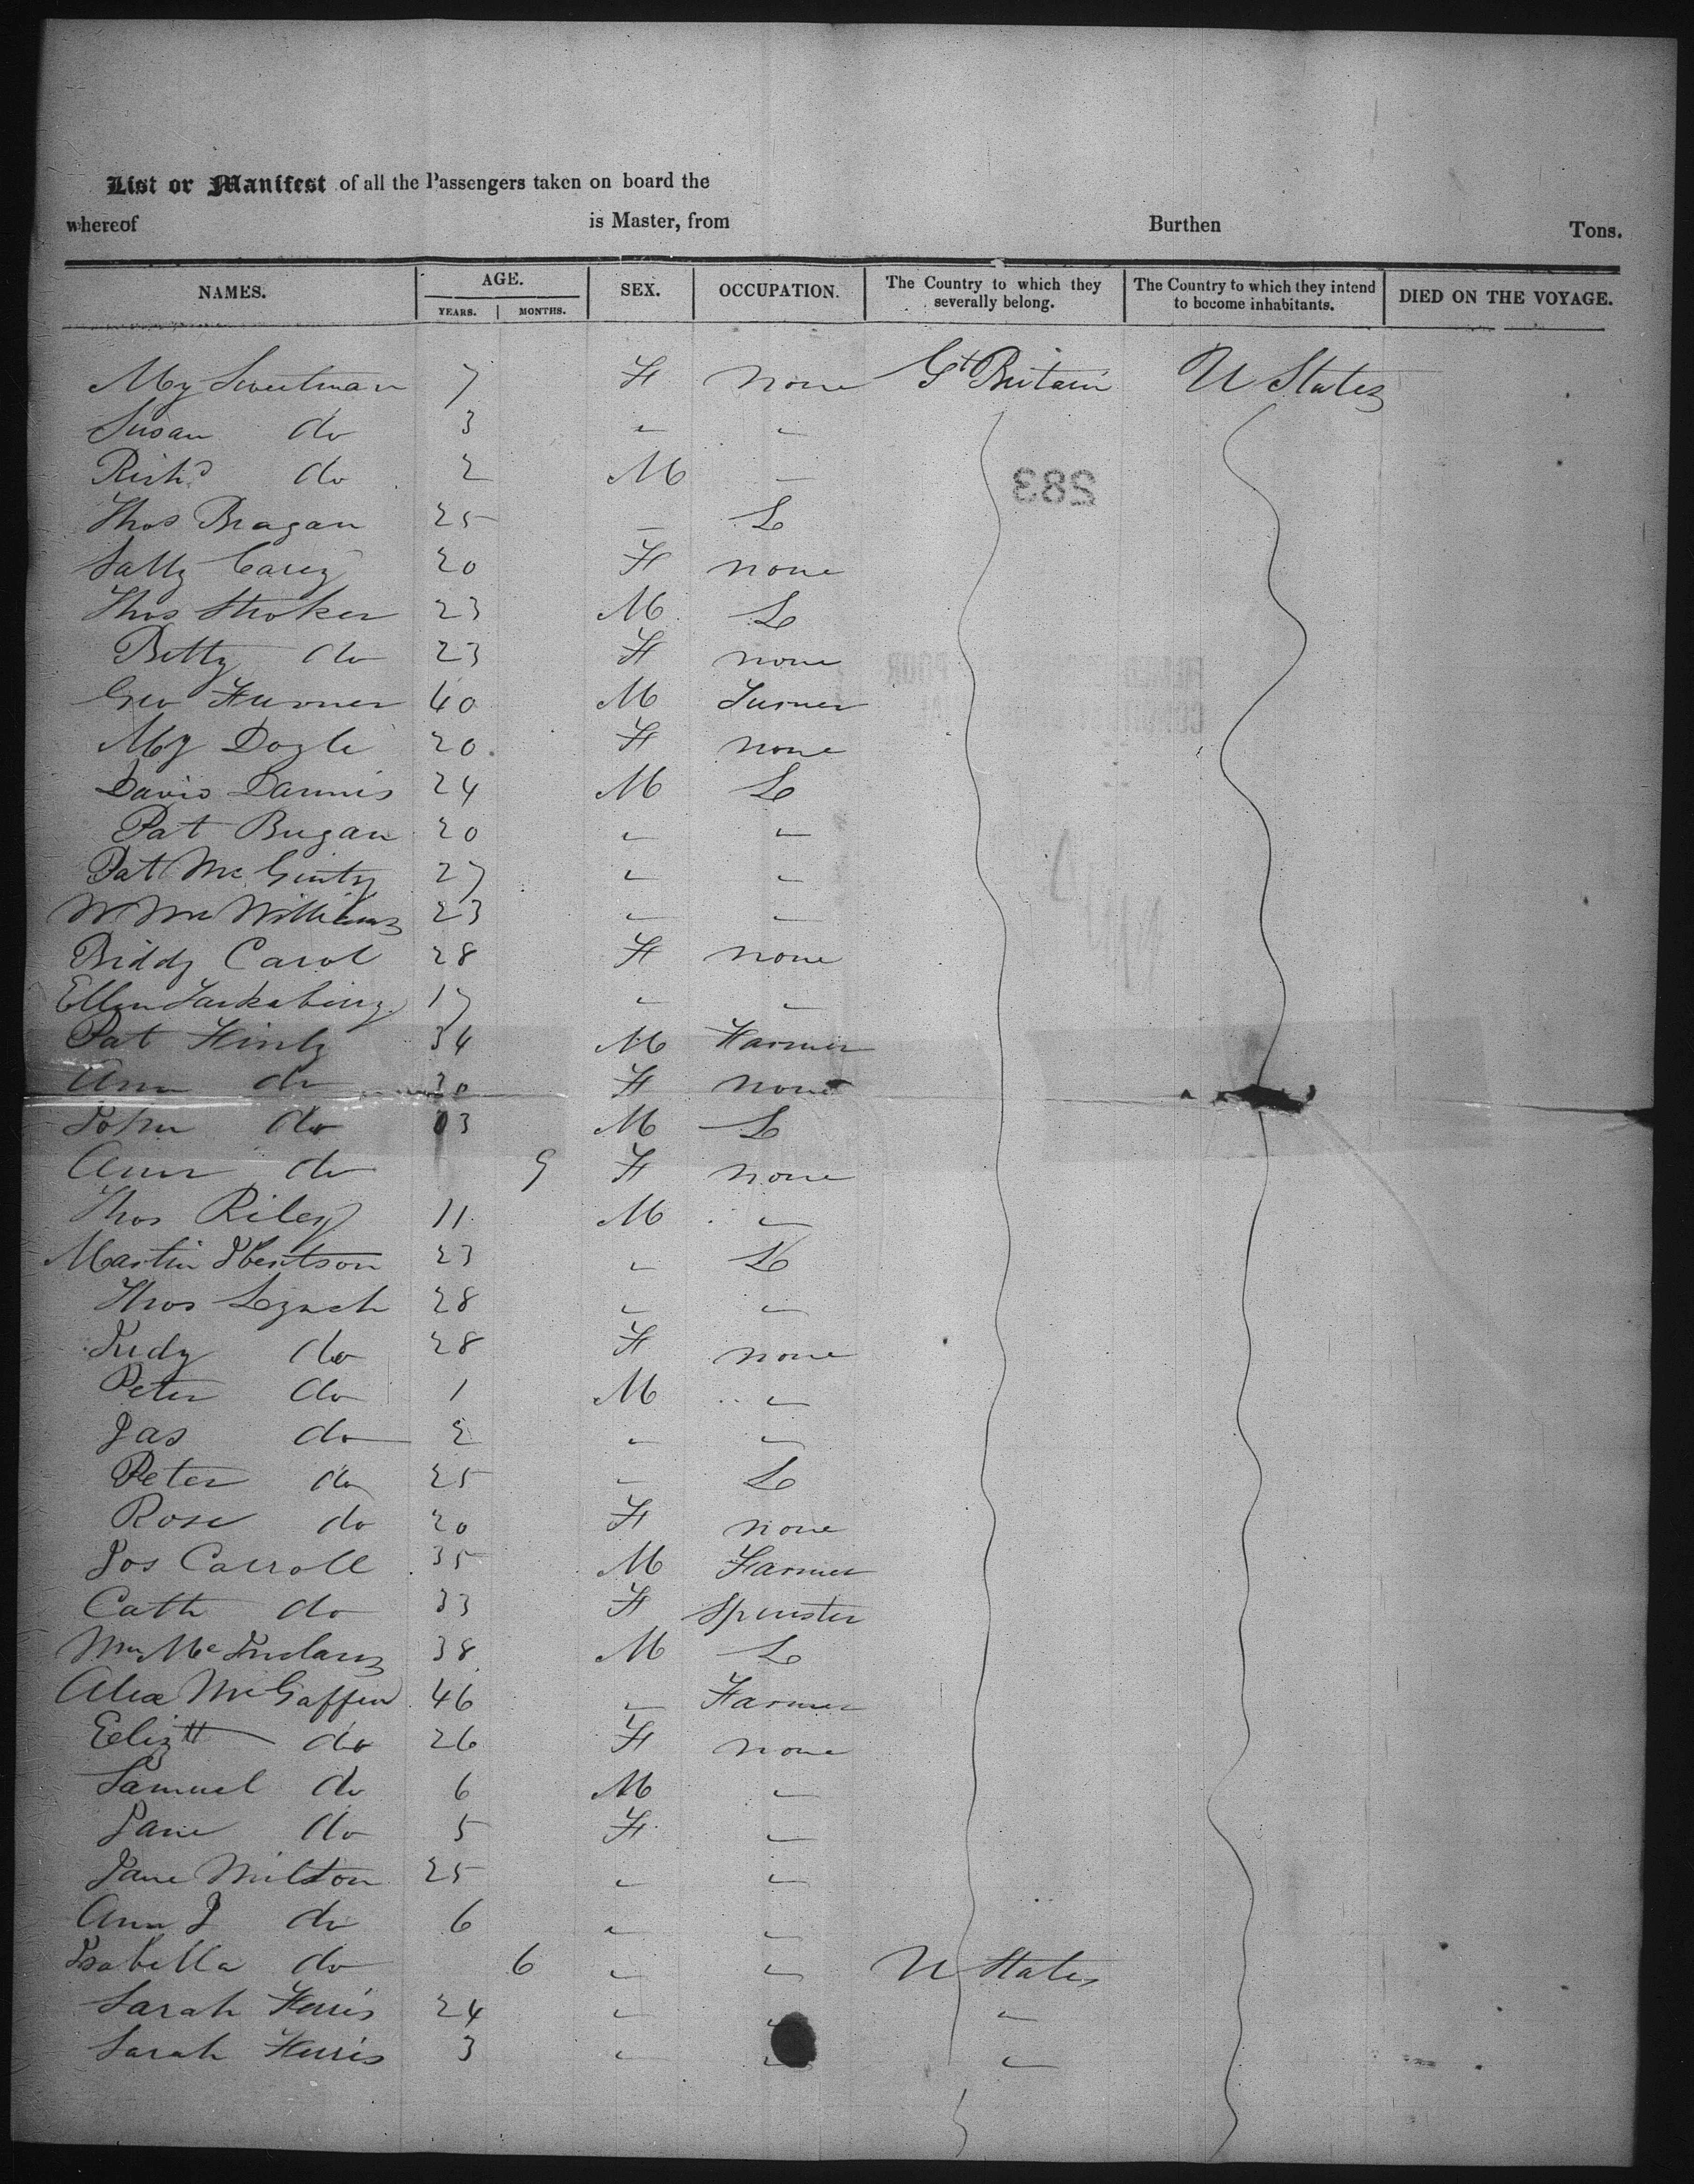 List or Manifest of all the Passengers taken on board the
whereof is Master, from Burthen Tons.
NAMES. AGE. SEX. OCCUPATION. The Country to which they severally belong. The Country to which they intend to become inhabitants. DIED ON THE VOYAGE.
YEARS. MONTHS.
My Sweetman 7 F none Gt Britain U States
Susan do 3 " "
Richd do 2 M "
283
Thos Bragan 25 " L
Sally Carey 20 F none
Thos Stroker 23 M L
Betty do 23 F none
Geo Furner 40 M Turner
My Doyle 20 F none
David Dannis 24 M L
Pat Bugan 20 " "
Pat McGinty 27 " "
W McWilliams 23 " "
Biddy Carol 28 F none
Ellen 17 " "
Pat Hinly 34 M Farmer
Ann do 30 F none
John do 03 M L
Ann do 9 F none
Thos Riley 11 M "
Martin Ibentson 23 " L
Thos Leynch 28 " "
Judy do 28 F none
Peter do 1 M "
Jas do 2 " "
Peter do 25 " L
Rose do 20 F none
Jos Carroll 35 M Farmer
Cath do 33 F Spinster
Wm Mc 38 M L
Alex McGaffen 46 " Farmer
Elizth do 26 F none
Samuel do 6 M "
Jane do 5 F "
Jane Milton 25 " "
Ann J do 6 " "
Isabella do 6 " " U States
Sarah Ferris 24 " " "
Sarah Ferris 3 " " "